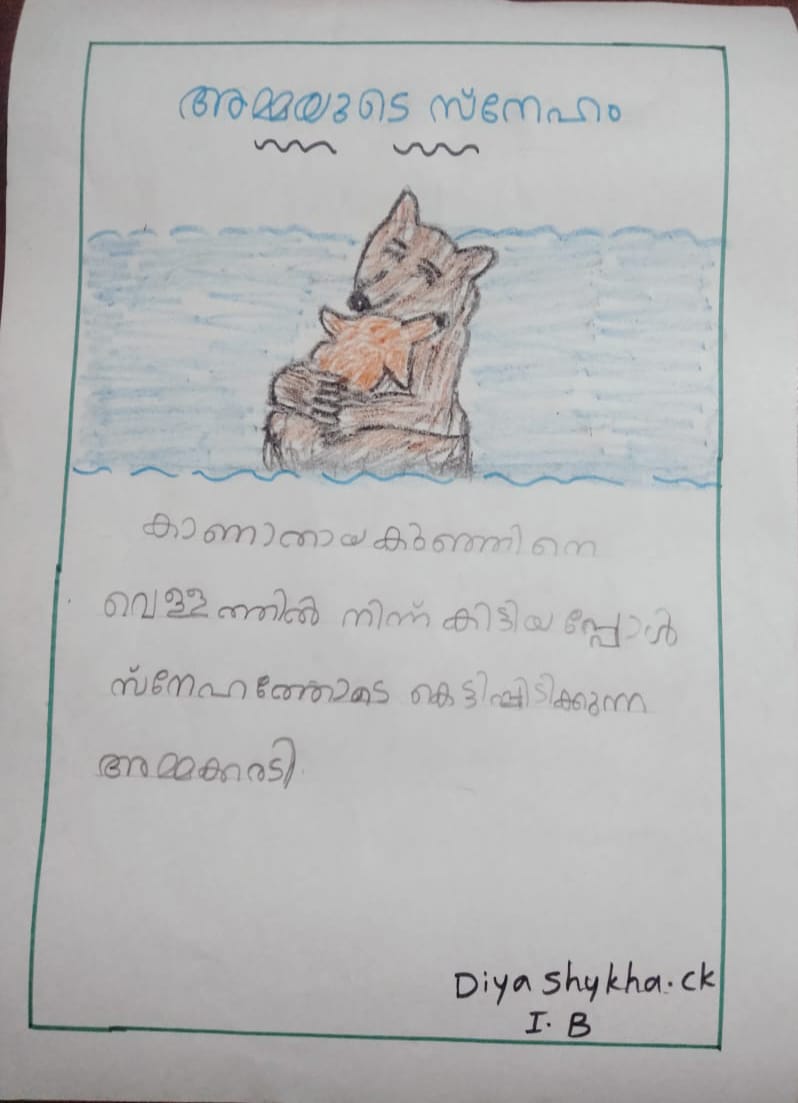 അമ്മയുടെ സ്നേഹം
കാണാതായ കുഞ്ഞിനെ
വെള്ളത്തിൽ നിന്ന് കിട്ടിയപ്പോൾ
സ്നേഹത്തോടെ കെട്ടിപ്പിടിക്കുന്ന
അമ്മക്കരടി
Diya Shykha.ck
I. B